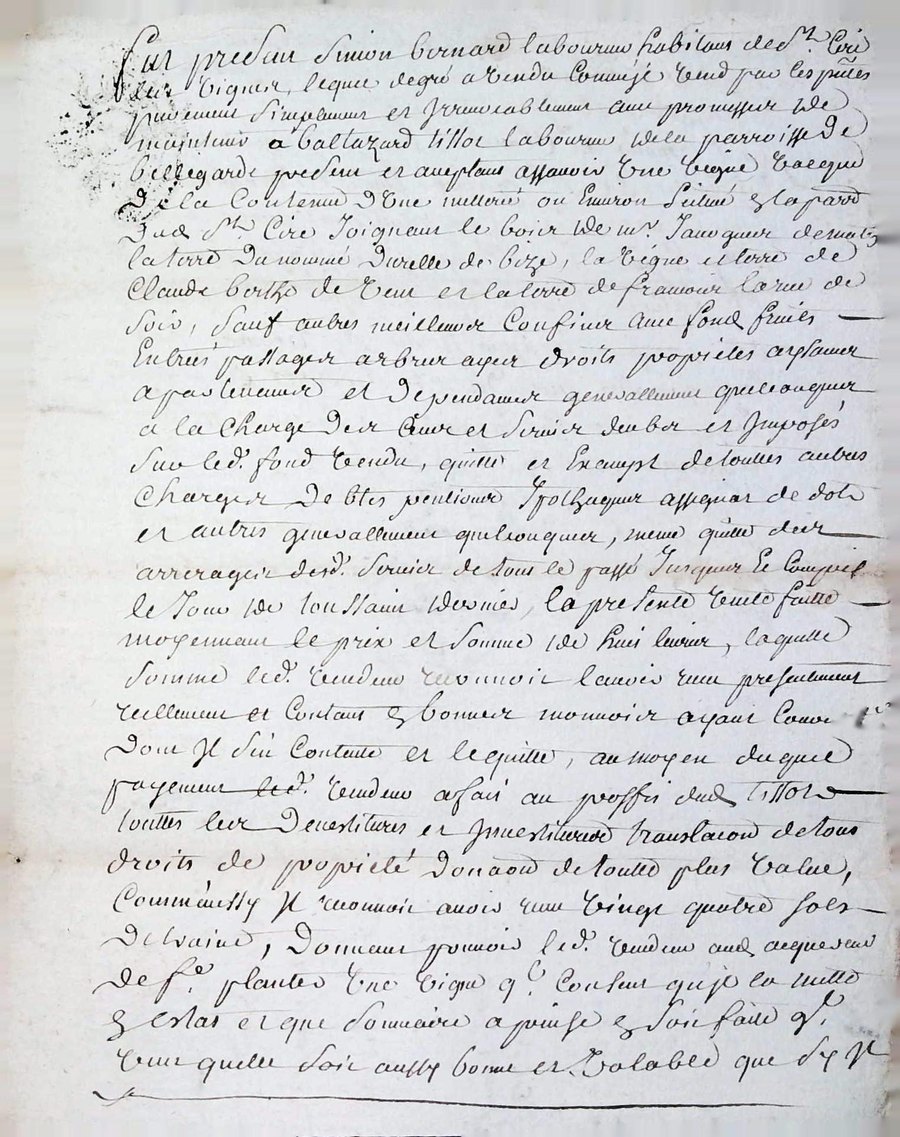 fut present Simon bernard laboureur habitant de St. Ciré
les vignes, lequel de gré a vendu Comme je vend par les pntes
purement simplement et Irrevocablement avec promesse de
maintenir a baltazard tissot laboureur de la parroisse de
bellegarde present et aceptant assavoir une vigne vacque
de la Contenue d'une mettené ou Environ scitué & la parr
dud St. Ciré Joignant le bois de mr. Jancquier de matin
la terre du nommé durelle de bize, la vigne et terre de
Claude berthe de vent et la terre de francois la rue de
soir, sauf autres meilleures Confines avec fond fruits
Entrées passages arbres ayers droits proprietes aysances
apartenances et dependances generallement quelconques
a la Charge des Cens et servis deubs et Imposés
sur led. fond vendu, quitte et Exempt de touttes autres
Charges debtes pentions Ypothaques assignat de dote
et autres generallement quelconques, meme quitte des
arrerages desd. servies de tout le passé Jusques Et Compris
le Jour de toussaint dernier, la presente vente faitte
moyennant le prix et somme de huit livres, laquelle
somme led. vendeur reconnoit lavoir reçu presentement
reellement et Contant & bonnes monnoies ayant Cours
dont Il sen Contente et le quitte, au moyen duquel
payement led. vendeur a fait au proffit dud tissot
touttes les devestitures et Investitures translacion de tous
droits de proprieté donaon de toutte plus value,
Comme aussy Il reconnoit avoir reçu vingt quatre sols
detraine, donnant pouvoir led. vendeur aud acquereur
de fe. planter une vigne q. Consent quil en mette
& estat et que sommaire a prinse & soit faite q.
veut quelle soit aussy bonne et valable que sy Il